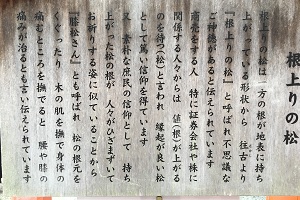 根上りの松
根上の松は一方の根が地表に持ち
上がっている形状から 往古より
『根上りの松』と呼ばれ不思議な
ご神徳があると伝えられています
商売をする人 特に証券会社や株に
関係する人々からは 値(根)が上がる
のを待つ(松)と言われ 縁起が良い松
として篤い信仰を得ています
又 素朴な庶民の信仰として 持ち
上がった松の根が 人々がひざまずいて
お祈りする姿に似ていることから
『膝松さん』とも呼ばれ 松の根元を
くぐったり 木の肌を撫で身体の
痛むところを撫でると 腰や膝の
痛みが治るとも言い伝えられています